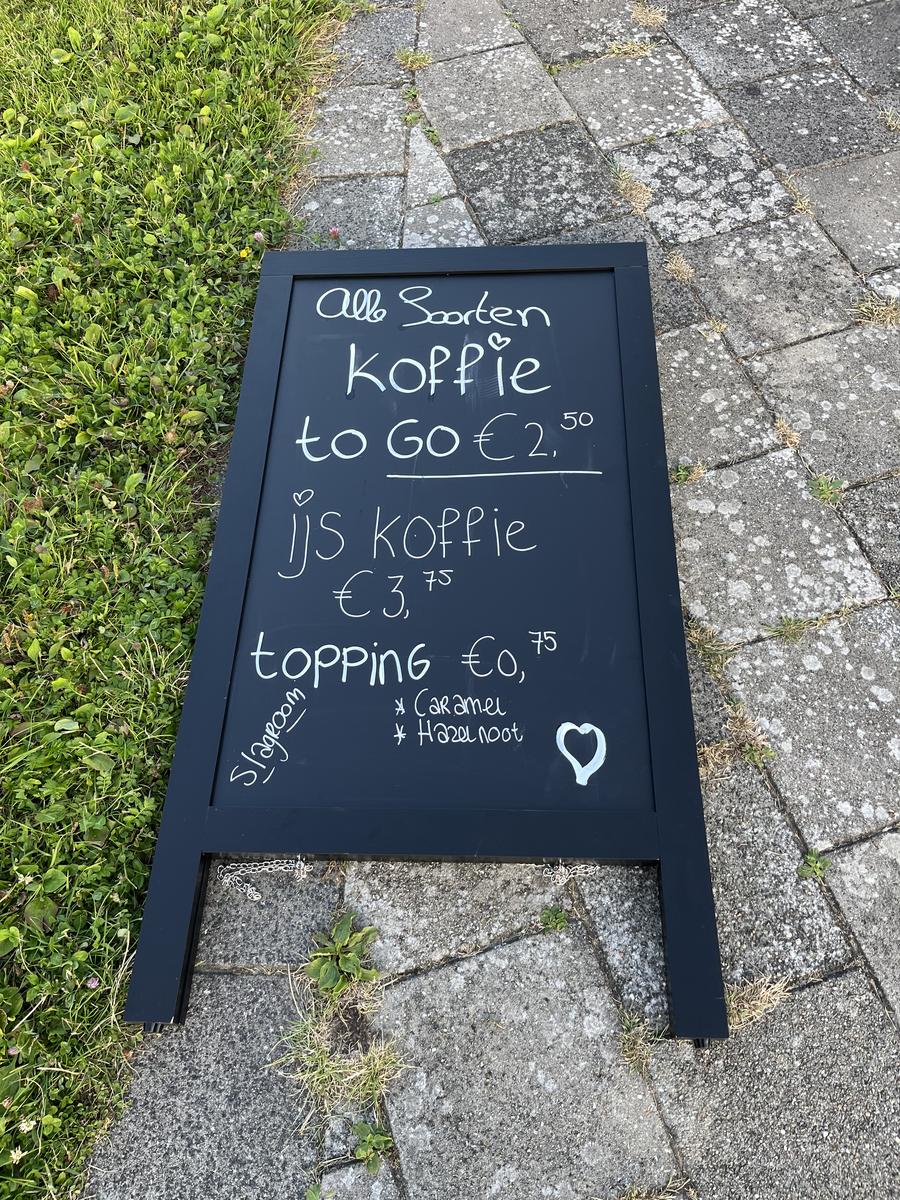 Alle Soorten
Koffie
to GO €2,50
ijs Koffie
€3,75
topping €0,75
Slagroom
* Caramel
* Hazelnoot